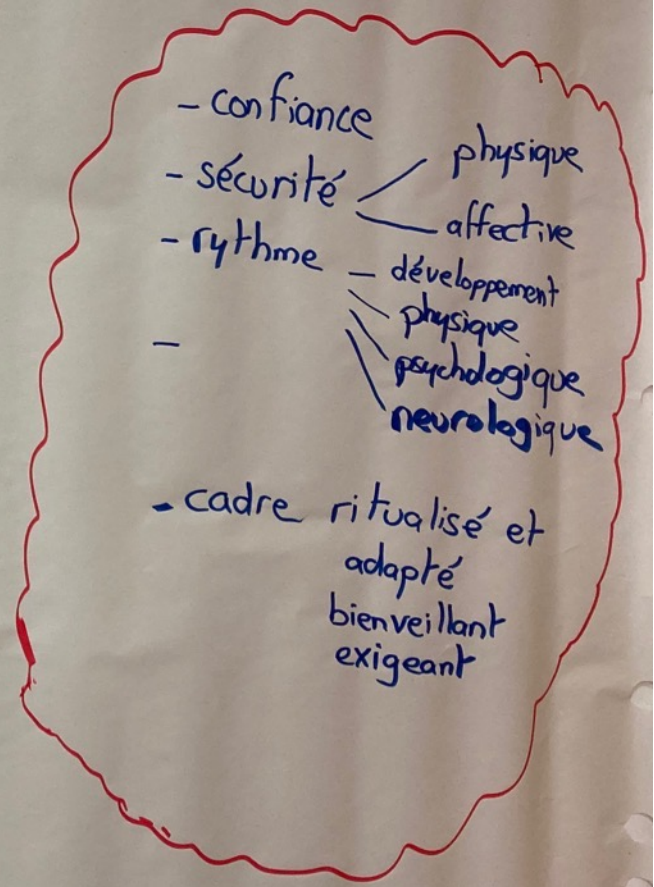 - confiance
- sécurité physique
affective
- rythme - développement
physique
psychologique
neurologique
-
- cadre ritualisé et
adapté
bienveillant
exigeant